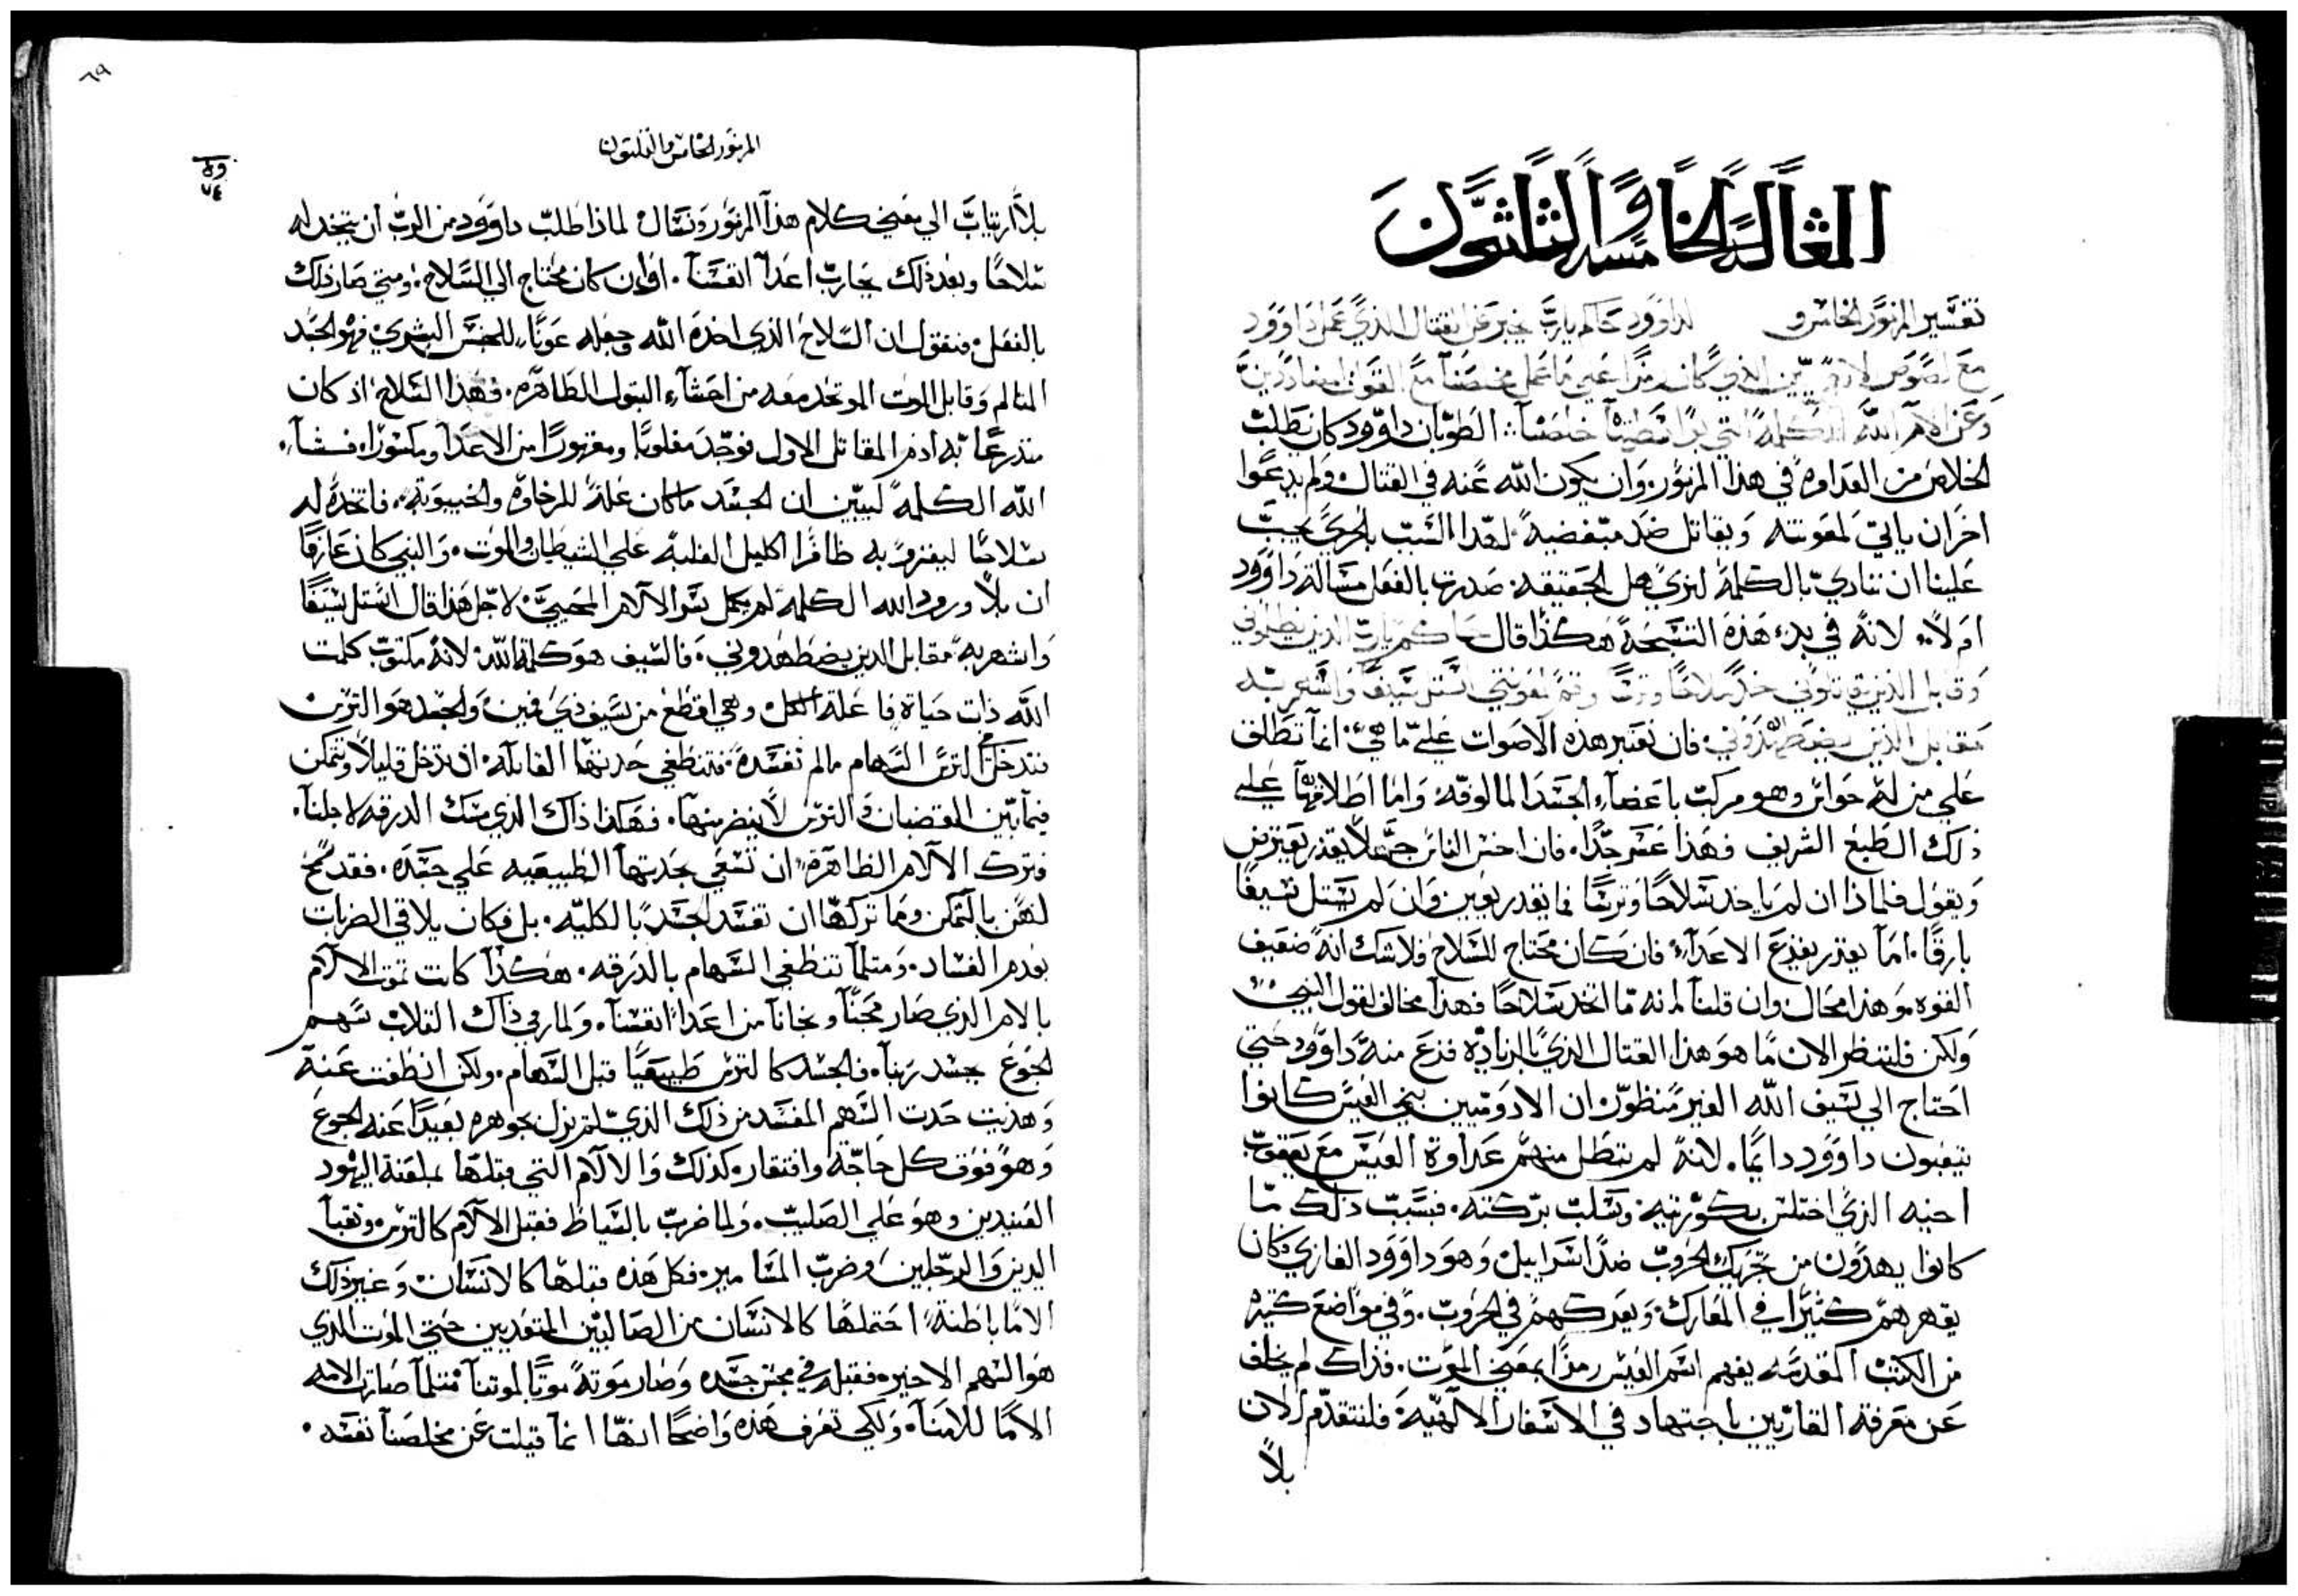 المقالة الخامسة والثلثون
تفسير المزمور الخامس و لداوود حاكم يارب يخبر عن القتال الذي عمل داوود
مع كان رمزًا علي ما عمل مخلصنا مع القوات
وعن الام الله الكلمة التي خلصنا الطوبان داوود كان يطلب
الخلاص من العداوة في هذا المزمور وان يكون الله عنه في القتال ولم يدعوا
اخر ان ياتي لمعونته ويقاتل ضد مبغضيه لهذا السبب بالحري يجب
علينا ان ننادي بالكلمة لنري هل الحقيقه صدرت بالفعل مسالة داوود
اولاً لانه في بدء هذه التسبحة هكذا قال حاكم يارب الذين يظلموني
وقابل الذين يقاتلوني خذ سلاحًا وترسًا وقم لمعونتي استل سيفًا واشهر به
مقابل الذين يضطهدوني فان نعتبر هذه الاصوات علي ما هي انما تطلق
علي من له حواس وهو مركب باعضاء الجسد المالوفه واما اطلاقها علي
ذلك الطبع الشريف فهذا عسر جدًا فان اخس الناس جهلا يقدر يعترض
ويقول فلماذا ان لم ياخد سلاحًا وترسًا فما يقدر يعين وان لم يستل سيفًا
بارقًا اما يقدر يفزع الاعداء فان كان محتاج للسلاح فلاشك انه ضعيف
القوه وهذا محال وان قلنا انه ما اتخد سلاحًا فهذا مخالف لقول النبي
ولكن فلننظر الان ما هو هذا القتال الذي بالزيادة فزع منه داوود حتي
احتاج الي سيف الله الغير منظور ان الادوميين بني العيس كانوا
يتعبون داوود دايمًا لانه لم تبطل منهم عداوة العيس مع يعقوب
اخيه الذي اختلس بكوريته وسلب بركته فبسبب ذلك ما
كانوا يهدون من تحريك الحروب ضد اسراييل وهو داوود الغازي وكان
يقهرهم كثيرًا في المعارك ويعركهم في الحروب وفي مواضع كتيره
من الكتب المقدسه يفهم اسم العيس رمزًا بمعني الموت فذاك لم يخف
عن معرفة القاريين باجتهاد في الاسفار الالهية فلنتقدم الان
بلا
٦٩
المزمور الخامس والثلثون
٧٤
بلا ارتياب الي معني كلام هذا المزمور ونسال لماذا طلب داوود من الرب ان يتخد له
سلاحًا وبعد ذلك يحارب اعدا انفسنا افان كان محتاج الي السلاح ومتي صار ذلك
بالفعل فنقول ان السلاح الذي اخذه الله وجعله عونًا للجنس البشري فهو الجسد
المتالم وقابل الموت الموتخد معه من احشاء البتول الطاهره فهذا السلاح اذ كان
متدرعًا به ادم المقاتل الاول فوجد مغلوبًا ومقهورًا من الاعدا ومكسورا فشاء
الله الكلمة ليبين ان الجسد ماكان علة للرخاوة والخيبوبة فاتخذه له
سلاحًا ليغزو به ظافرا اكليل الغلبه علي الشيطان والموت والنبي كان عارفًا
ان بلا ورود الله الكلمة لم يكمل سر الالام المحيية لاجل هذا قال استل سيفًا
واشهر به مقابل الذين يضطهدوني فالسيف هو كلمة الله لانه مكتوب كلمت
الله ذات حياة فاعلة الكل وهي اقطع من سيف ذي فمين والجسد هو الترس
فتدخل الترس السهام مالم تفسده فتنطفي حديتها القاتله اذ تدخل قليلاً وتتمكن
فيما بين القضبان والترس لا ينضر منها فهكذا ذاك الذي مسك الدرقه لاجلنا
فترك الالام الظاهرة ان تسعي بحديتها الطبيعيه علي جسده فقد سمح
لهن بالتمكن وما تركها ان تفسد الجسد بالكليه بل فكان يلاقي الضربات
بعدم الفساد ومتلما تنطفي السهام بالدرقه هكذا كانت تموت الالام
بالامر الذي صار مجنًا ونجانا من اعدا انفسنا ولما رمي ذاك القلاب سهم
الجوع جسد ربنا فالجسد كالترس طبيعيًا قبل السهام ولكن انطفت عنه
وهديت حدت السهم المفسد من ذلك الذي لم يزل بجوهره بعيدًا عنه الجوع
وهو فوق كل حاجة وافتقار كذلك والالام التي قبلها بملعنة اليهود
العنيدين وهو علي الصليب ولما ضرب بالسياط فقبل الالام كالترس ونقبا
اليدين والرجلين وضرب المسامير فكل هذه قبلها كالانسان وغير ذلك
الامًا باطنة احتملها كالانسان من الصالبين المتعديين حتي الموت الذي
هو السهم الاخير فقبله في مجن جسده وصار موته موتًا لموتنا متلما صارت الامه
الامًا للامنا ولكي تعرف هذه واضحًا انها انما قيلت عن مخلصنا نفسه